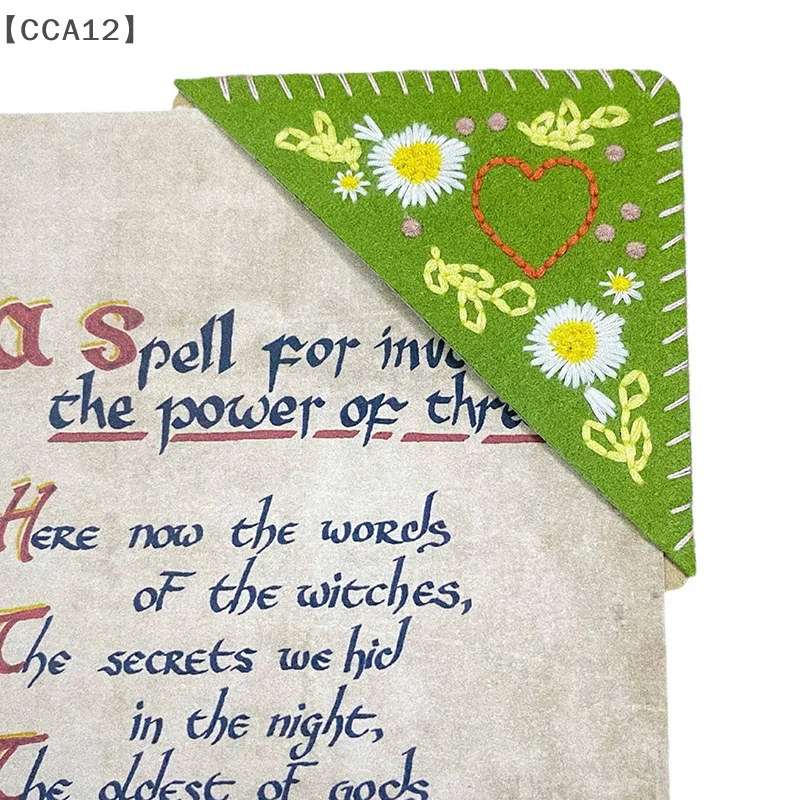 【CCA12】
a Spell for
the power of
Here now the words
of the witches,
The secrets we hid
in the night,
The oldest of gods